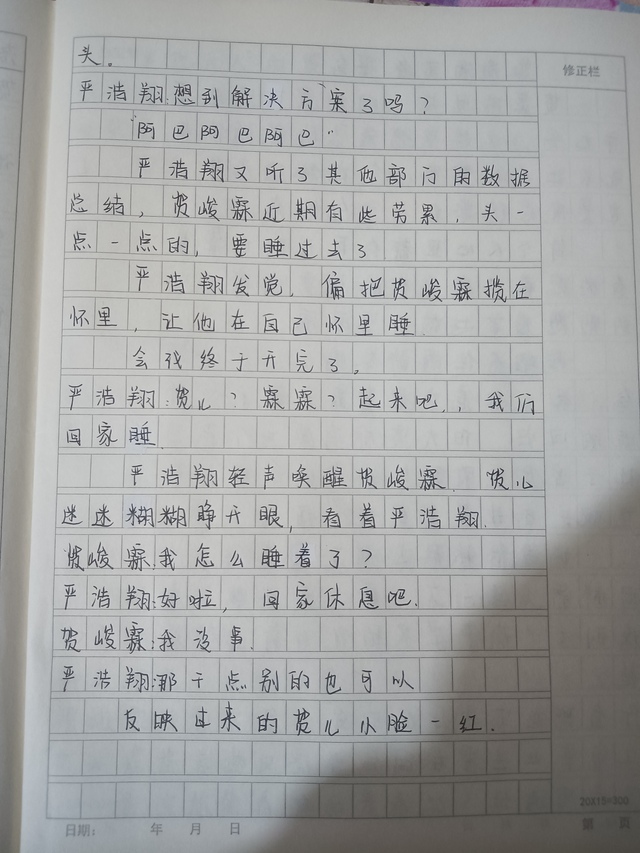 头。
修正栏
严浩翔:想到解决方案了吗?
“阿巴阿巴阿巴”
严浩翔又听了其他部门的数据
总结,贺峻霖近期有些劳累,头一
点一点的,要睡过去了
严浩翔发觉,偏把贺峻霖揽在
怀里,让他在自己怀里睡.
会议终于开完了。
严浩翔:贺儿?霖霖?起来吧,我们
回家睡.
严浩翔轻声唤醒贺峻霖.贺儿
迷迷糊糊睁开眼,看着严浩翔.
贺峻霖:我怎么睡着了?
严浩翔:好啦,回家休息吧.
贺峻霖:我没事.
严浩翔:那干点别的也可以
反映过来的贺儿小脸一红.
20X15=300
日期: 年 月 日
第 页